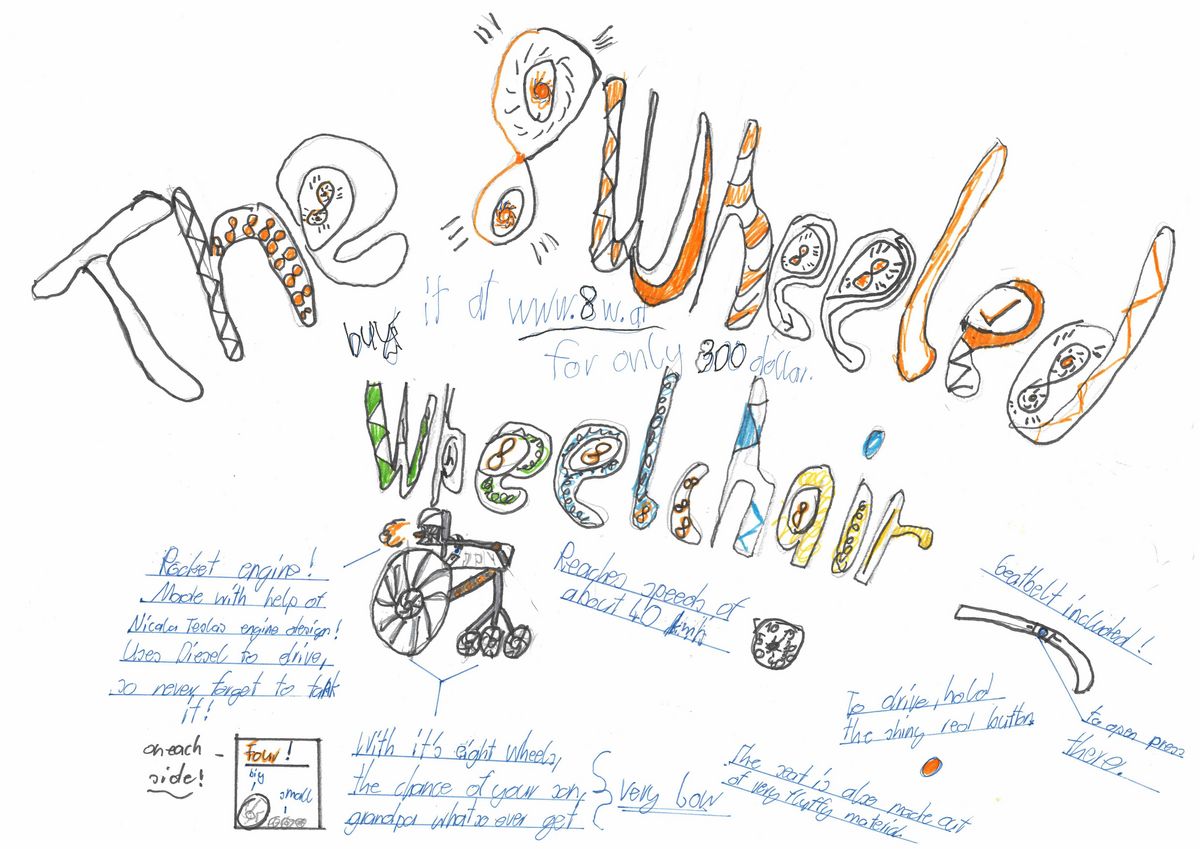 The 8 Wheeled
buy it at www.8w.at
for only 800 dollar.
Wheelchair
Rocket engine!
Made with help of
Nicola Teslas engine design!
Uses Diesel to drive,
so never forget to tank
it!
Reaches speeds of
about 40 kmh
Seatbelt included!
to open press
there.
To drive, hold
the shiny red button.
The seat is also made out
of very fluffy material.
With it's eight wheels,
the chance of your son,
grandpa whatso ever get
very low
on each
side!
Four!
big
small